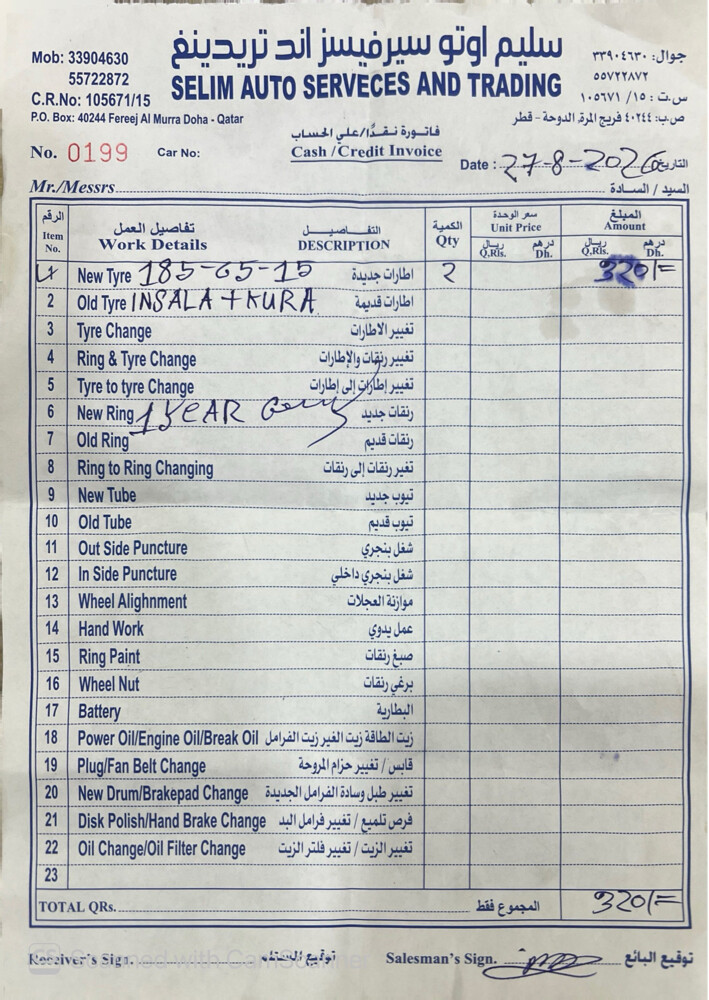 سليم اوتو سيرفيسز اند تريدينغ
SELIM AUTO SERVECES AND TRADING
Mob: 33904630
55722872
C.R.No: 105671/15
P.O. Box: 40244 Fereej Al Murra Doha - Qatar
جوال: ٣٣٩٠٤٦٣٠
٥٥٧٢٢٨٧٢
س.ت : ١٥/ ١٠٥٦٧١
ص.ب: ٤٠٢٤٤ فريج المرة, الدوحة - قطر
فاتورة نقدًا/علي الحساب
Cash / Credit Invoice
No. 0199 Car No:
Date : 27-8-2026 التاريخ
Mr./Messrs السيد / السادة
الرقم تفاصيل العمل التفـاصـيــل الكمية سعر الوحدة المبلغ
Item No. Work Details DESCRIPTION Qty Unit Price Amount
ريال درهم ريال درهم
Q.Rls. Dh. Q.Rls. Dh.
New Tyre 185-65-15 اطارات جديدة 2 320/=
2 Old Tyre INSALA + KURA اطارات قديمة
3 Tyre Change تغيير الاطارات
4 Ring & Tyre Change تغيير رنقات والإطارات
5 Tyre to tyre Change تغيير إطارات إلى إطارات
6 New Ring 1 YEAR رنقات جديد
7 Old Ring رنقات قديم
8 Ring to Ring Changing تغير رنقات إلى رنقات
9 New Tube تيوب جديد
10 Old Tube تيوب قديم
11 Out Side Puncture شغل بنجري
12 In Side Puncture شغل بنجري داخلي
13 Wheel Alighnment موازنة العجلات
14 Hand Work عمل يدوي
15 Ring Paint صبغ رنقات
16 Wheel Nut برغي رنقات
17 Battery البطارية
18 Power Oil/Engine Oil/Break Oil زيت الطاقة زيت الغير زيت الفرامل
19 Plug/Fan Belt Change قابس / تغيير حزام المروحة
20 New Drum/Brakepad Change تغيير طبل وسادة الفرامل الجديدة
21 Disk Polish/Hand Brake Change قرص تلميع / تغيير فرامل اليد
22 Oil Change/Oil Filter Change تغيير الزيت / تغيير فلتر الزيت
23
TOTAL QRs. المجموع فقط 320/=
Receiver's Sign. توقيع المستلم Salesman's Sign. توقيع البائع
Scanned with CamScanner